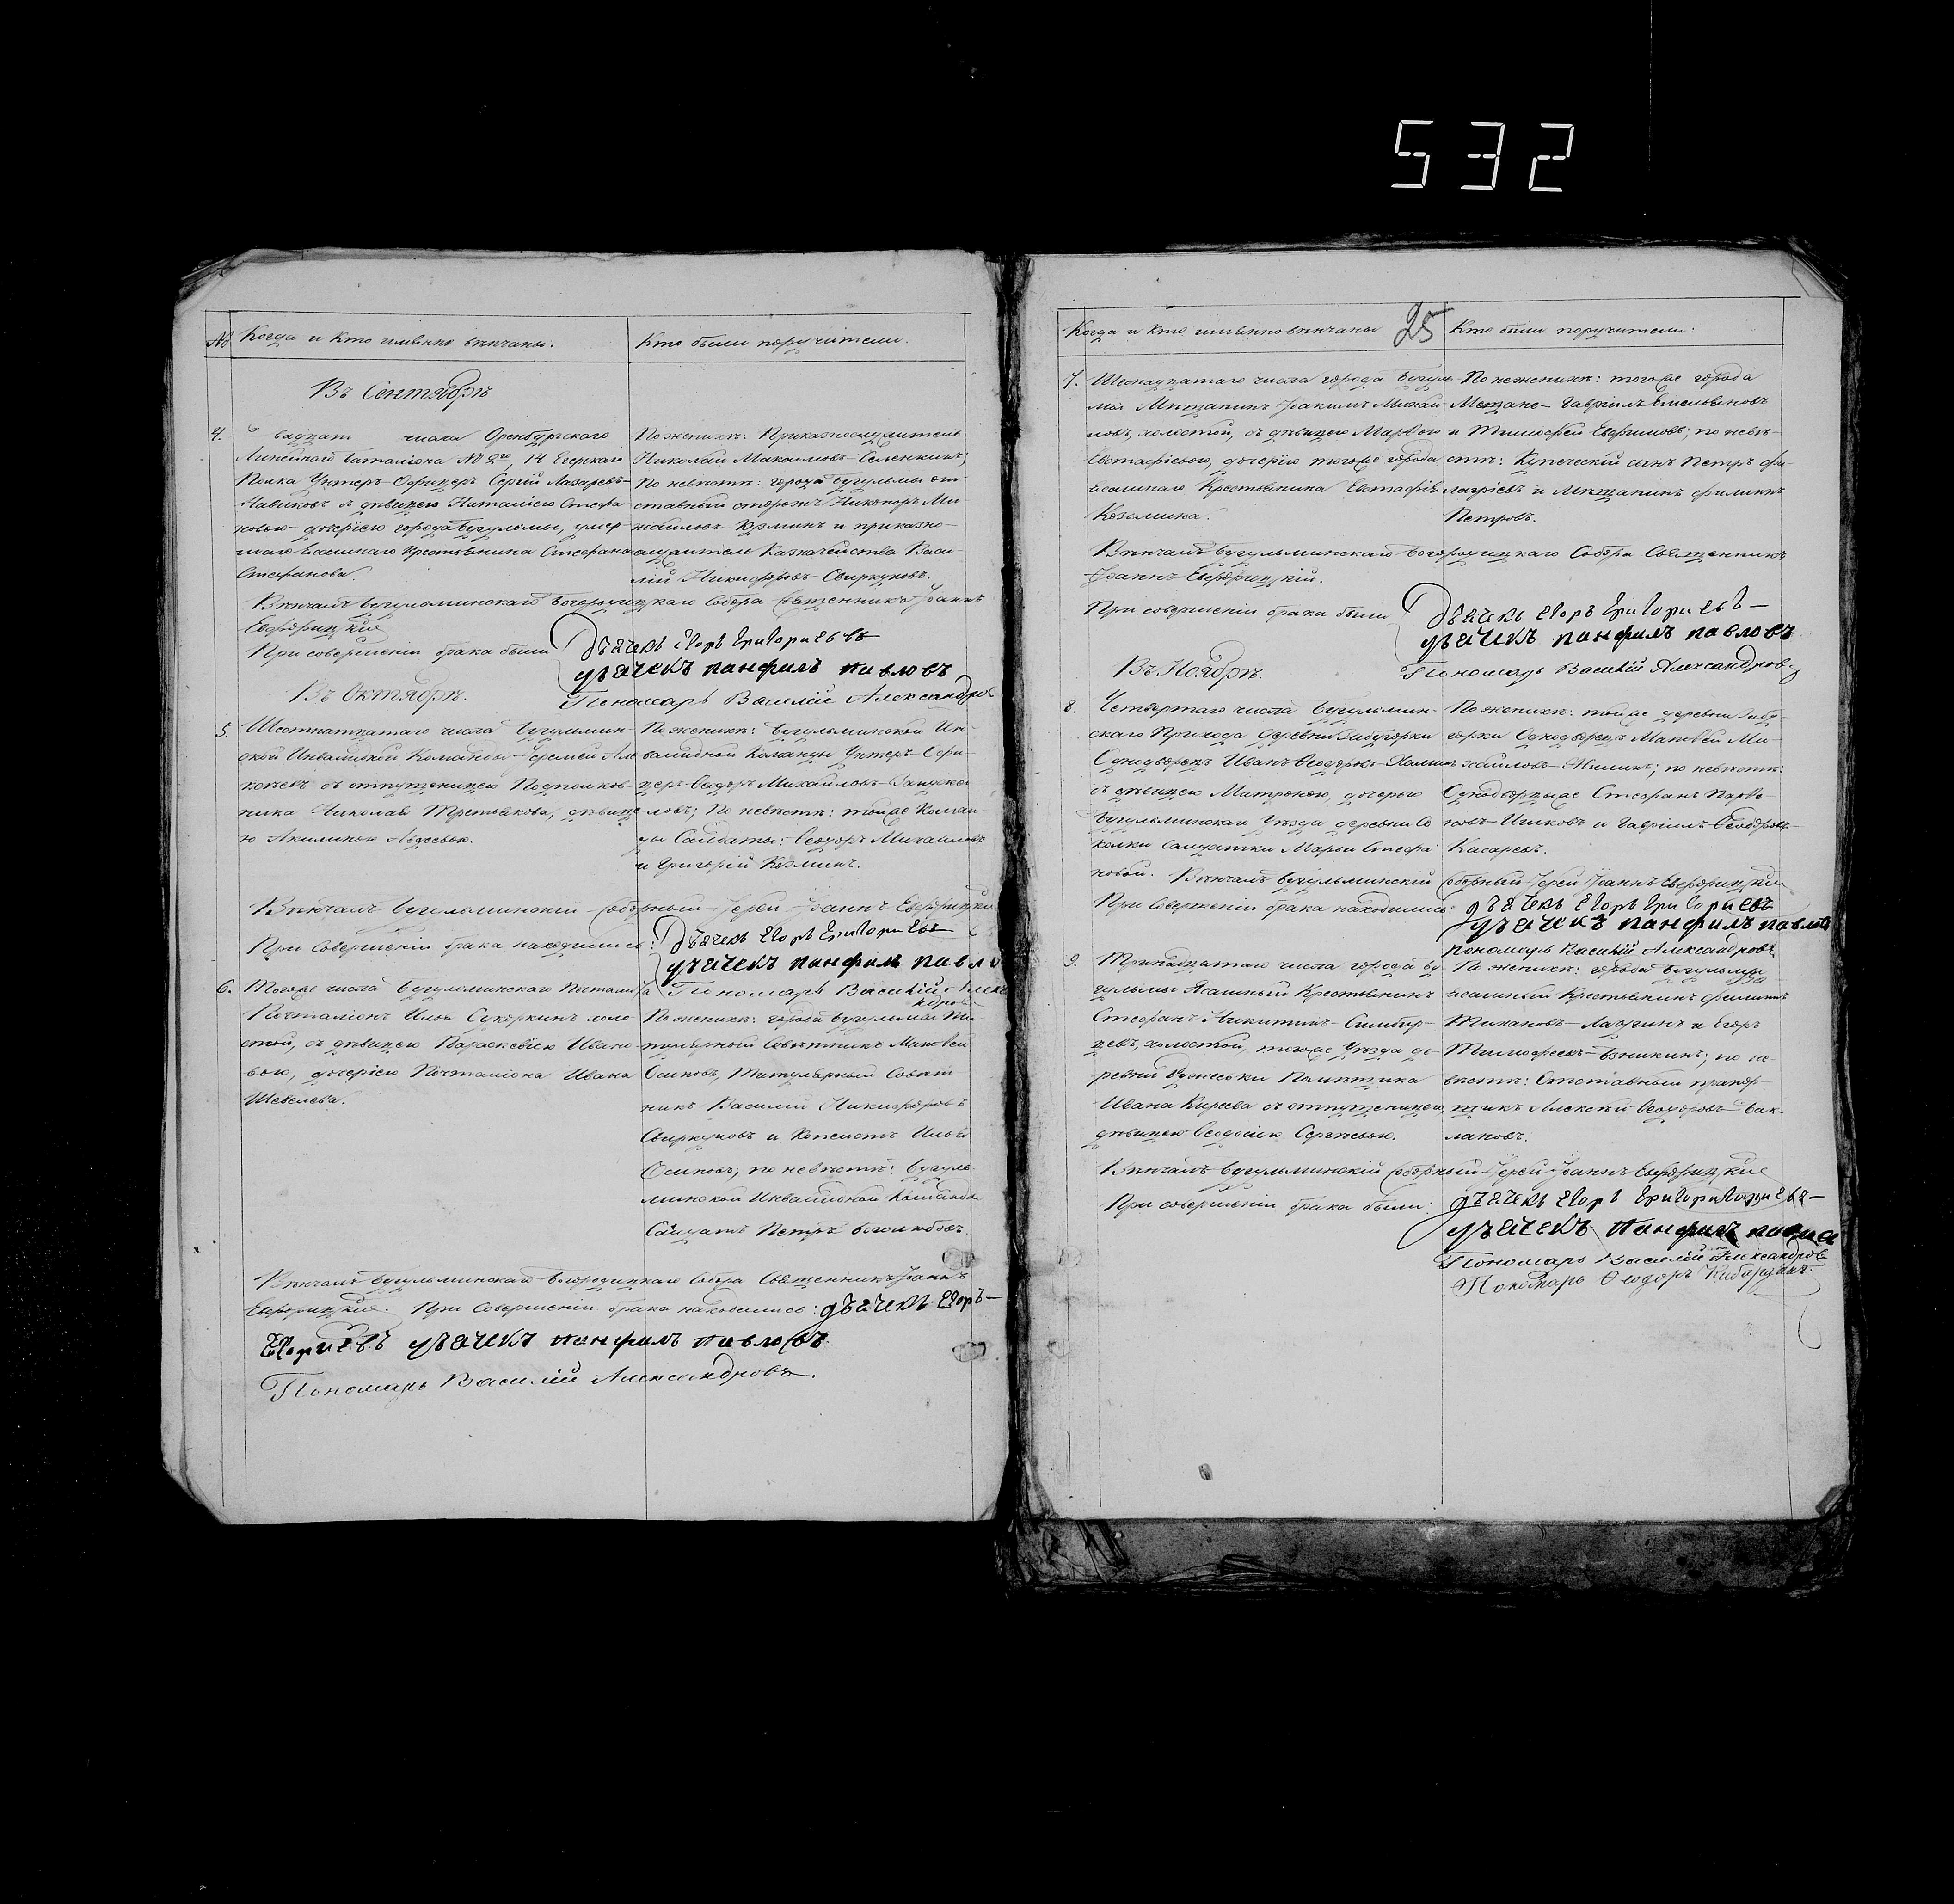 532
№
Когда и кто имянно вѣнчаны.
Кто были поручители.
Въ Сентябрѣ
4.
числа Оренбургскаго
Линейнаго Баталіона № 14 Егерскаго
Полка Унтеръ-Офицеръ Сергій Лазаревъ-
съ дѣвицею Наталіею Стефа-
новою дочерью города Бугульмы, умер-
шаго Ясашнаго крестьянина Стефана
Стефанова.
По женихѣ: Приказнослужитель
Николай Максимовъ
По невѣстѣ: города Бугульмы от-
ставный Никаноръ Ми-
хайловъ Кузминъ и приказно-
служитель Казначейства Васи-
лій Никифоровъ-Свиркуновъ.
Вѣнчалъ Бугульминскаго Богородицкаго Собора Священникъ Іоаннъ
При совершеніи брака были
Дьячекъ Егоръ Григорьевъ
дьячекъ панфилъ павловъ
Пономарь Василій Александров
Въ Октябрѣ.
5.
Шестнатцатаго числа Бугульмин-
ской Инвалидной Команды Еремей Але
ксѣевъ съ отпущеницею Подполков-
ника Николая Третьякова, дѣвице
ю Акилиною
По женихѣ: Бугульминской Ин-
валидной Команды Унтеръ-Офи-
церъ Ѳедоръ Михайловъ
ловъ; По невѣстѣ: тойже Коман
ды Салдаты: Ѳеодоръ Михайловъ
и Григорій Козминъ.
Вѣнчалъ Бугульминскій Соборный Іерей Іоаннъ
При совершеніи брака находились:
Дьячекъ Егоръ Григорьевъ
дьячекъ панфилъ павло
Пономарь Василій Алекса
ндров
6.
Тогоже числа Бугульминскаго
Почталіонъ Илья Сукоркинъ холо
стой, съ дѣвицею Параскевіею Ивано-
вою, дочерью Почталіона Ивана
Шевелева.
По женихѣ: города Бугульмы Ти-
тулярный Совѣтникъ Матвей
Осиповъ, Титулярный Совѣт
никъ Василій Никифоровъ
Свиркуновъ и Копеистъ Илья
Осиповъ; по невѣстѣ: Бугуль-
минской Инвалидной Команды
Салдатъ Петръ Боголюбовъ.
Вѣнчалъ Бугульминскаго Богородицкаго Собора Священникъ Іоаннъ
При Совершеніи брака находились: дьячекъ Егоръ
дьячекъ панфилъ павловъ
Пономарь Василій Александровъ.
Когда и кто имянно вѣнчаны
25
Кто были поручители:
7.
Шеснадцатаго числа города Бугуль-
мы Мѣщанинъ Іоакимъ Михай-
ловъ, холостой, съ дѣвицею Марѳою
Евстафіевою, дочерію тогоже города
ясашнаго Крестьянина Евстафія
Козьмина.
По женихѣ: тогоже города
Мещане Гавріилъ Емельяновъ
и Тимофей Ефимовъ; по невѣ-
стѣ: Купеческій сынъ Петръ Фи-
и Мѣщанинъ Филиппъ
Петровъ.
Вѣнчалъ Бугульминскаго Богородицкаго Собора Священникъ
Іоаннъ
При совершеніи брака были
Дьячекъ Егоръ Григорьевъ
дьячекъ панфилъ павловъ
Пономарь Василій Александровъ
Въ Ноябрѣ.
8.
Четвертаго числа Бугульмин-
скаго Прихода деревни
Однодворецъ Иванъ Ѳеодоровъ
съ дѣвицею Матроною, дочерью
Бугульминскаго Уѣзда деревни Со
колки салдатки Марьи Стефа
новой.
По женихѣ: тойже деревни
горки Однодворецъ Матвей Ми-
хайловъ-Жилинъ; по невѣстѣ:
Однодворцыже Стефанъ
и Гавріилъ Ѳеодоровъ
Касаревъ.
Вѣнчалъ Бугульминскій Соборный Іерей Іоаннъ
При Совершеніи брака находились:
дьячекъ Егоръ Григорьевъ
дьячекъ панфилъ павловъ
Пономарь Василій Александровъ
9.
Тринадцатаго числа города Бу-
гульмы Ясашный Крестьянинъ
Стефанъ Никитинъ-Симбир-
цевъ, холостой, тогоже Уѣзда де-
ревни Помѣщика
Ивана Киреева съ отпущеницею
дѣвицею Ѳеодосіею Сергеевою.
По женихѣ: города Бугульмы
ясашный Крестьянинъ Филиппъ
и Егоръ
Тимофеевъ; по не-
вѣстѣ: Отставный прапор-
щикъ Алексѣй Ѳеодоровъ Бак-
лановъ.
Вѣнчалъ Бугульминскій Соборный Іерей Іоаннъ
При совершеніи брака были:
дьячекъ Егоръ
дьячекъ панфилъ
Пономарь Василій Александров
Пономарь Ѳеодоръ